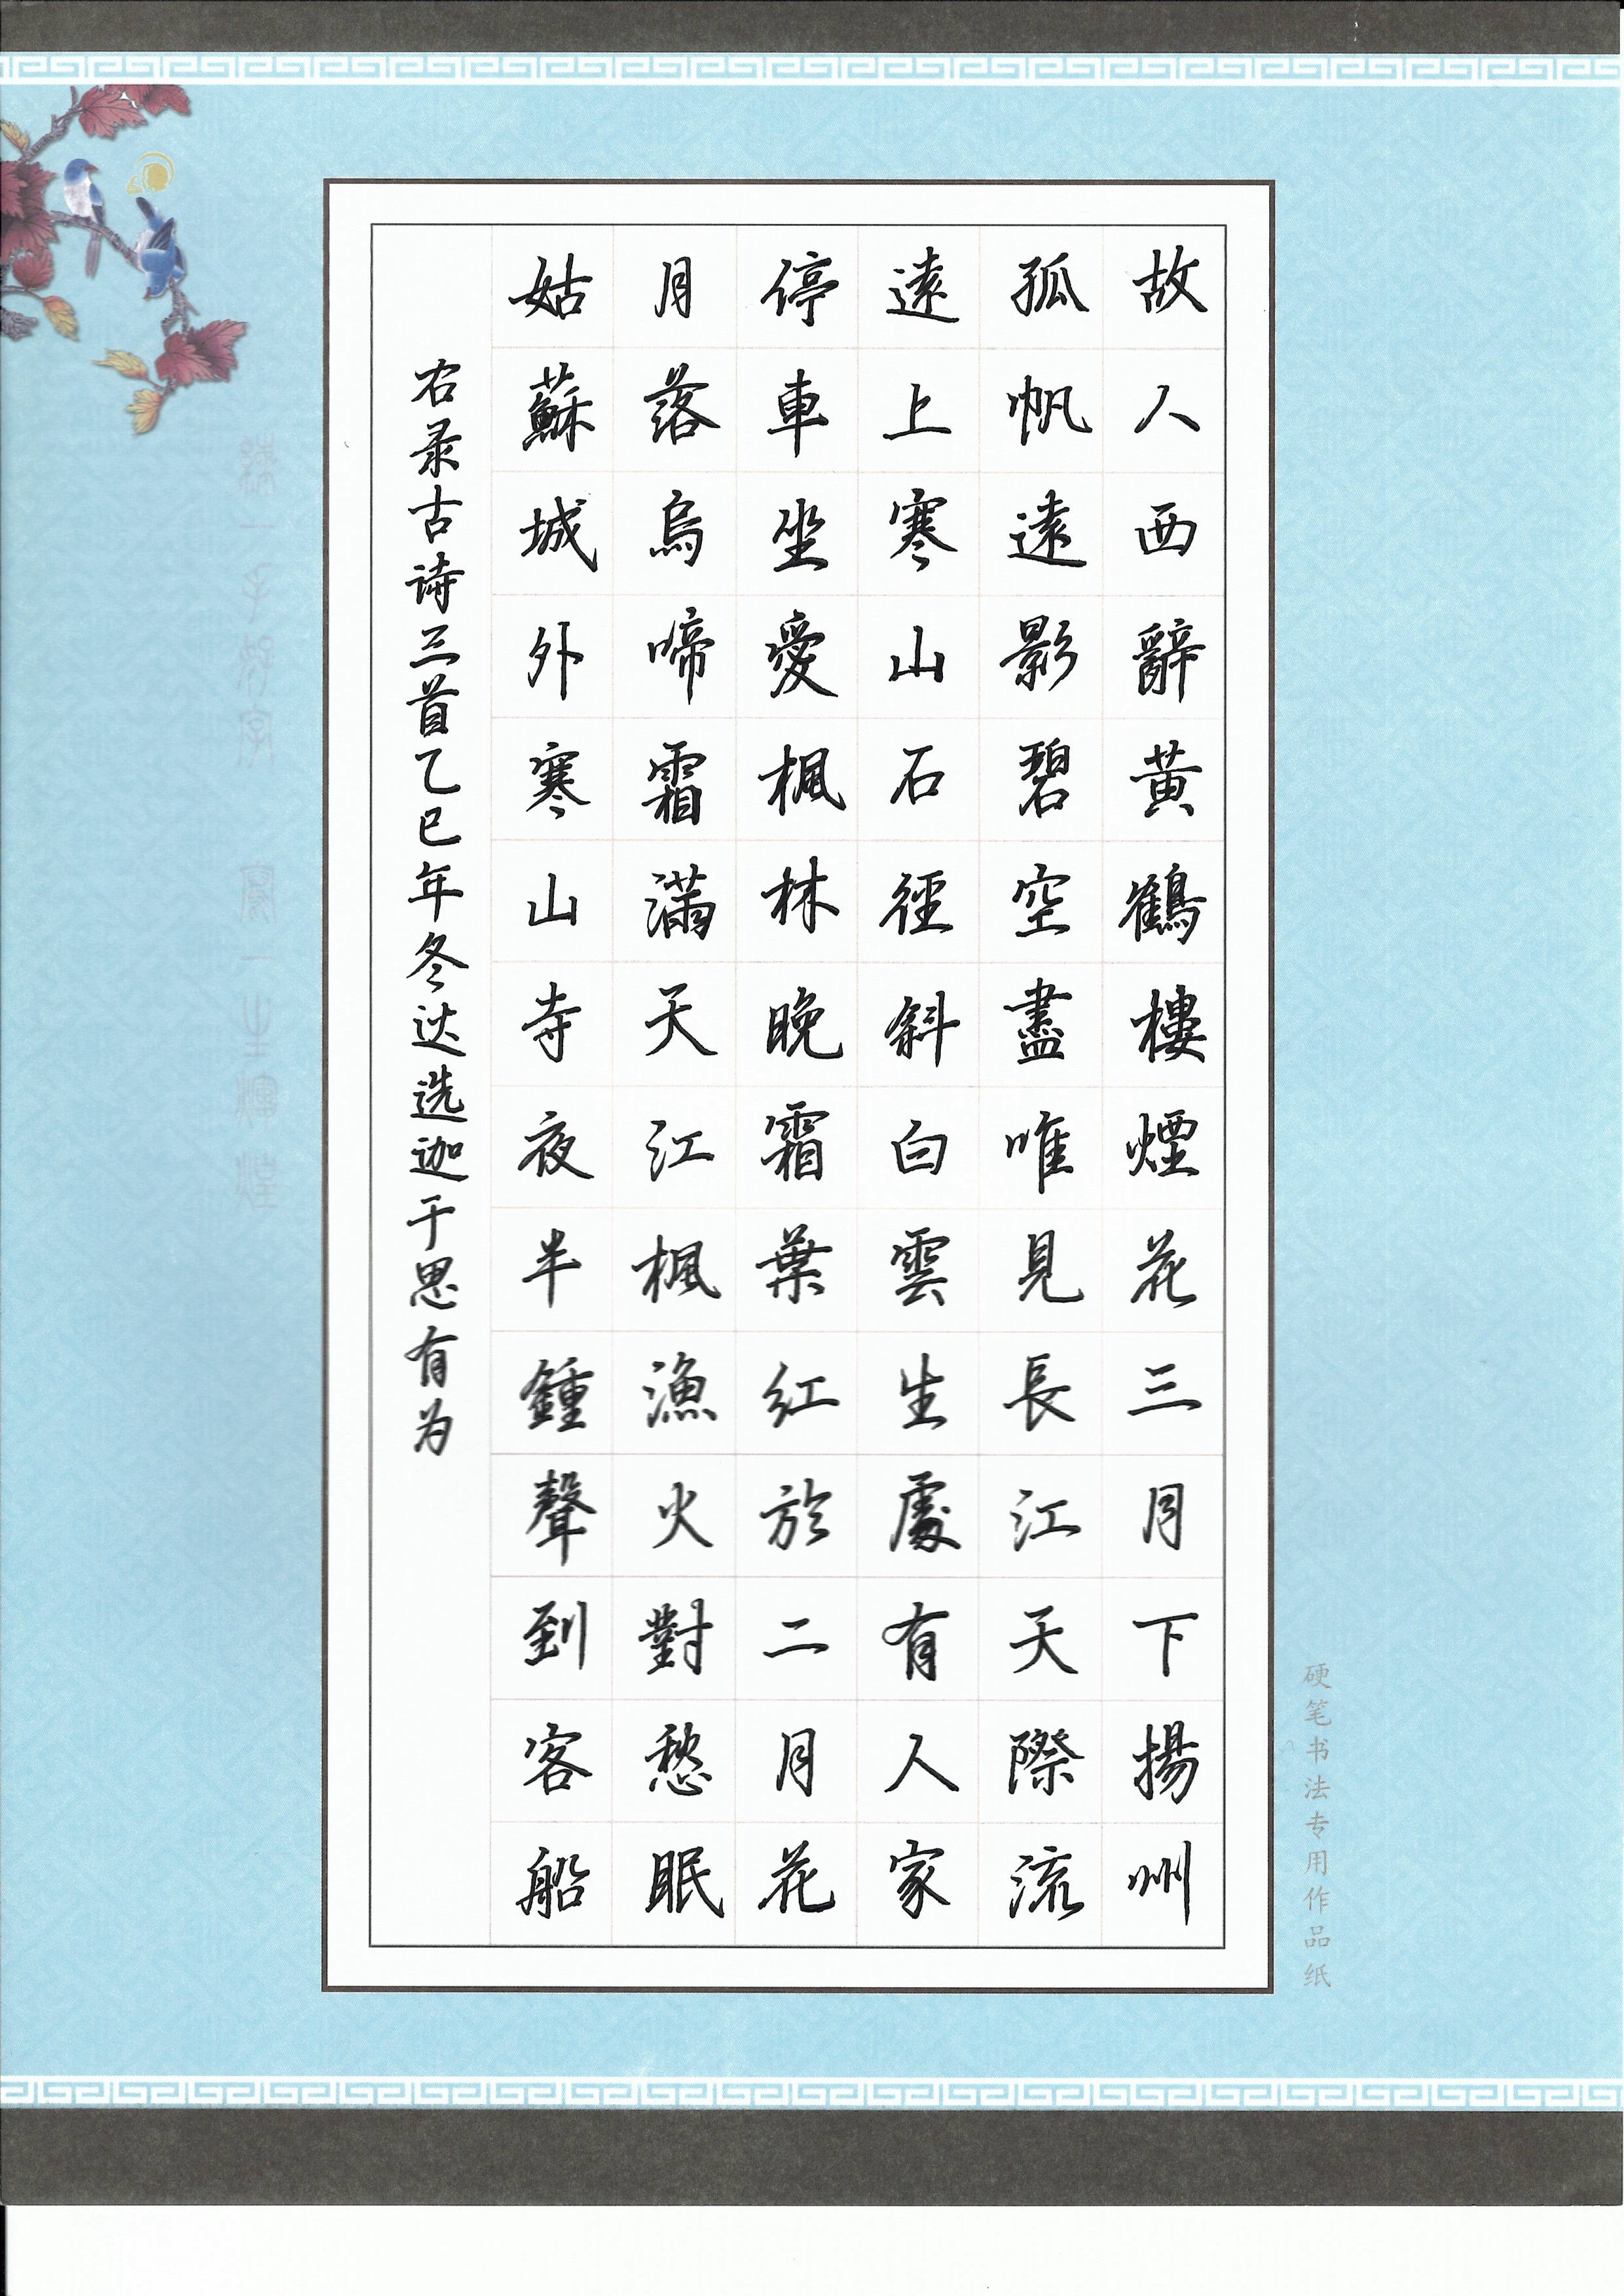 硬笔书法专用作品纸
故人西辭黄鶴樓煙花三月下揚州
孤帆遠影碧空盡唯見長江天際流
遠上寒山石徑斜白雲生處有人家
停車坐愛楓林晚霜葉紅於二月花
月落烏啼霜滿天江楓漁火對愁眠
姑蘇城外寒山寺夜半鍾聲到客船
右录古诗三首乙巳年冬达选迦于思有为
練一手好字 寫一生輝煌